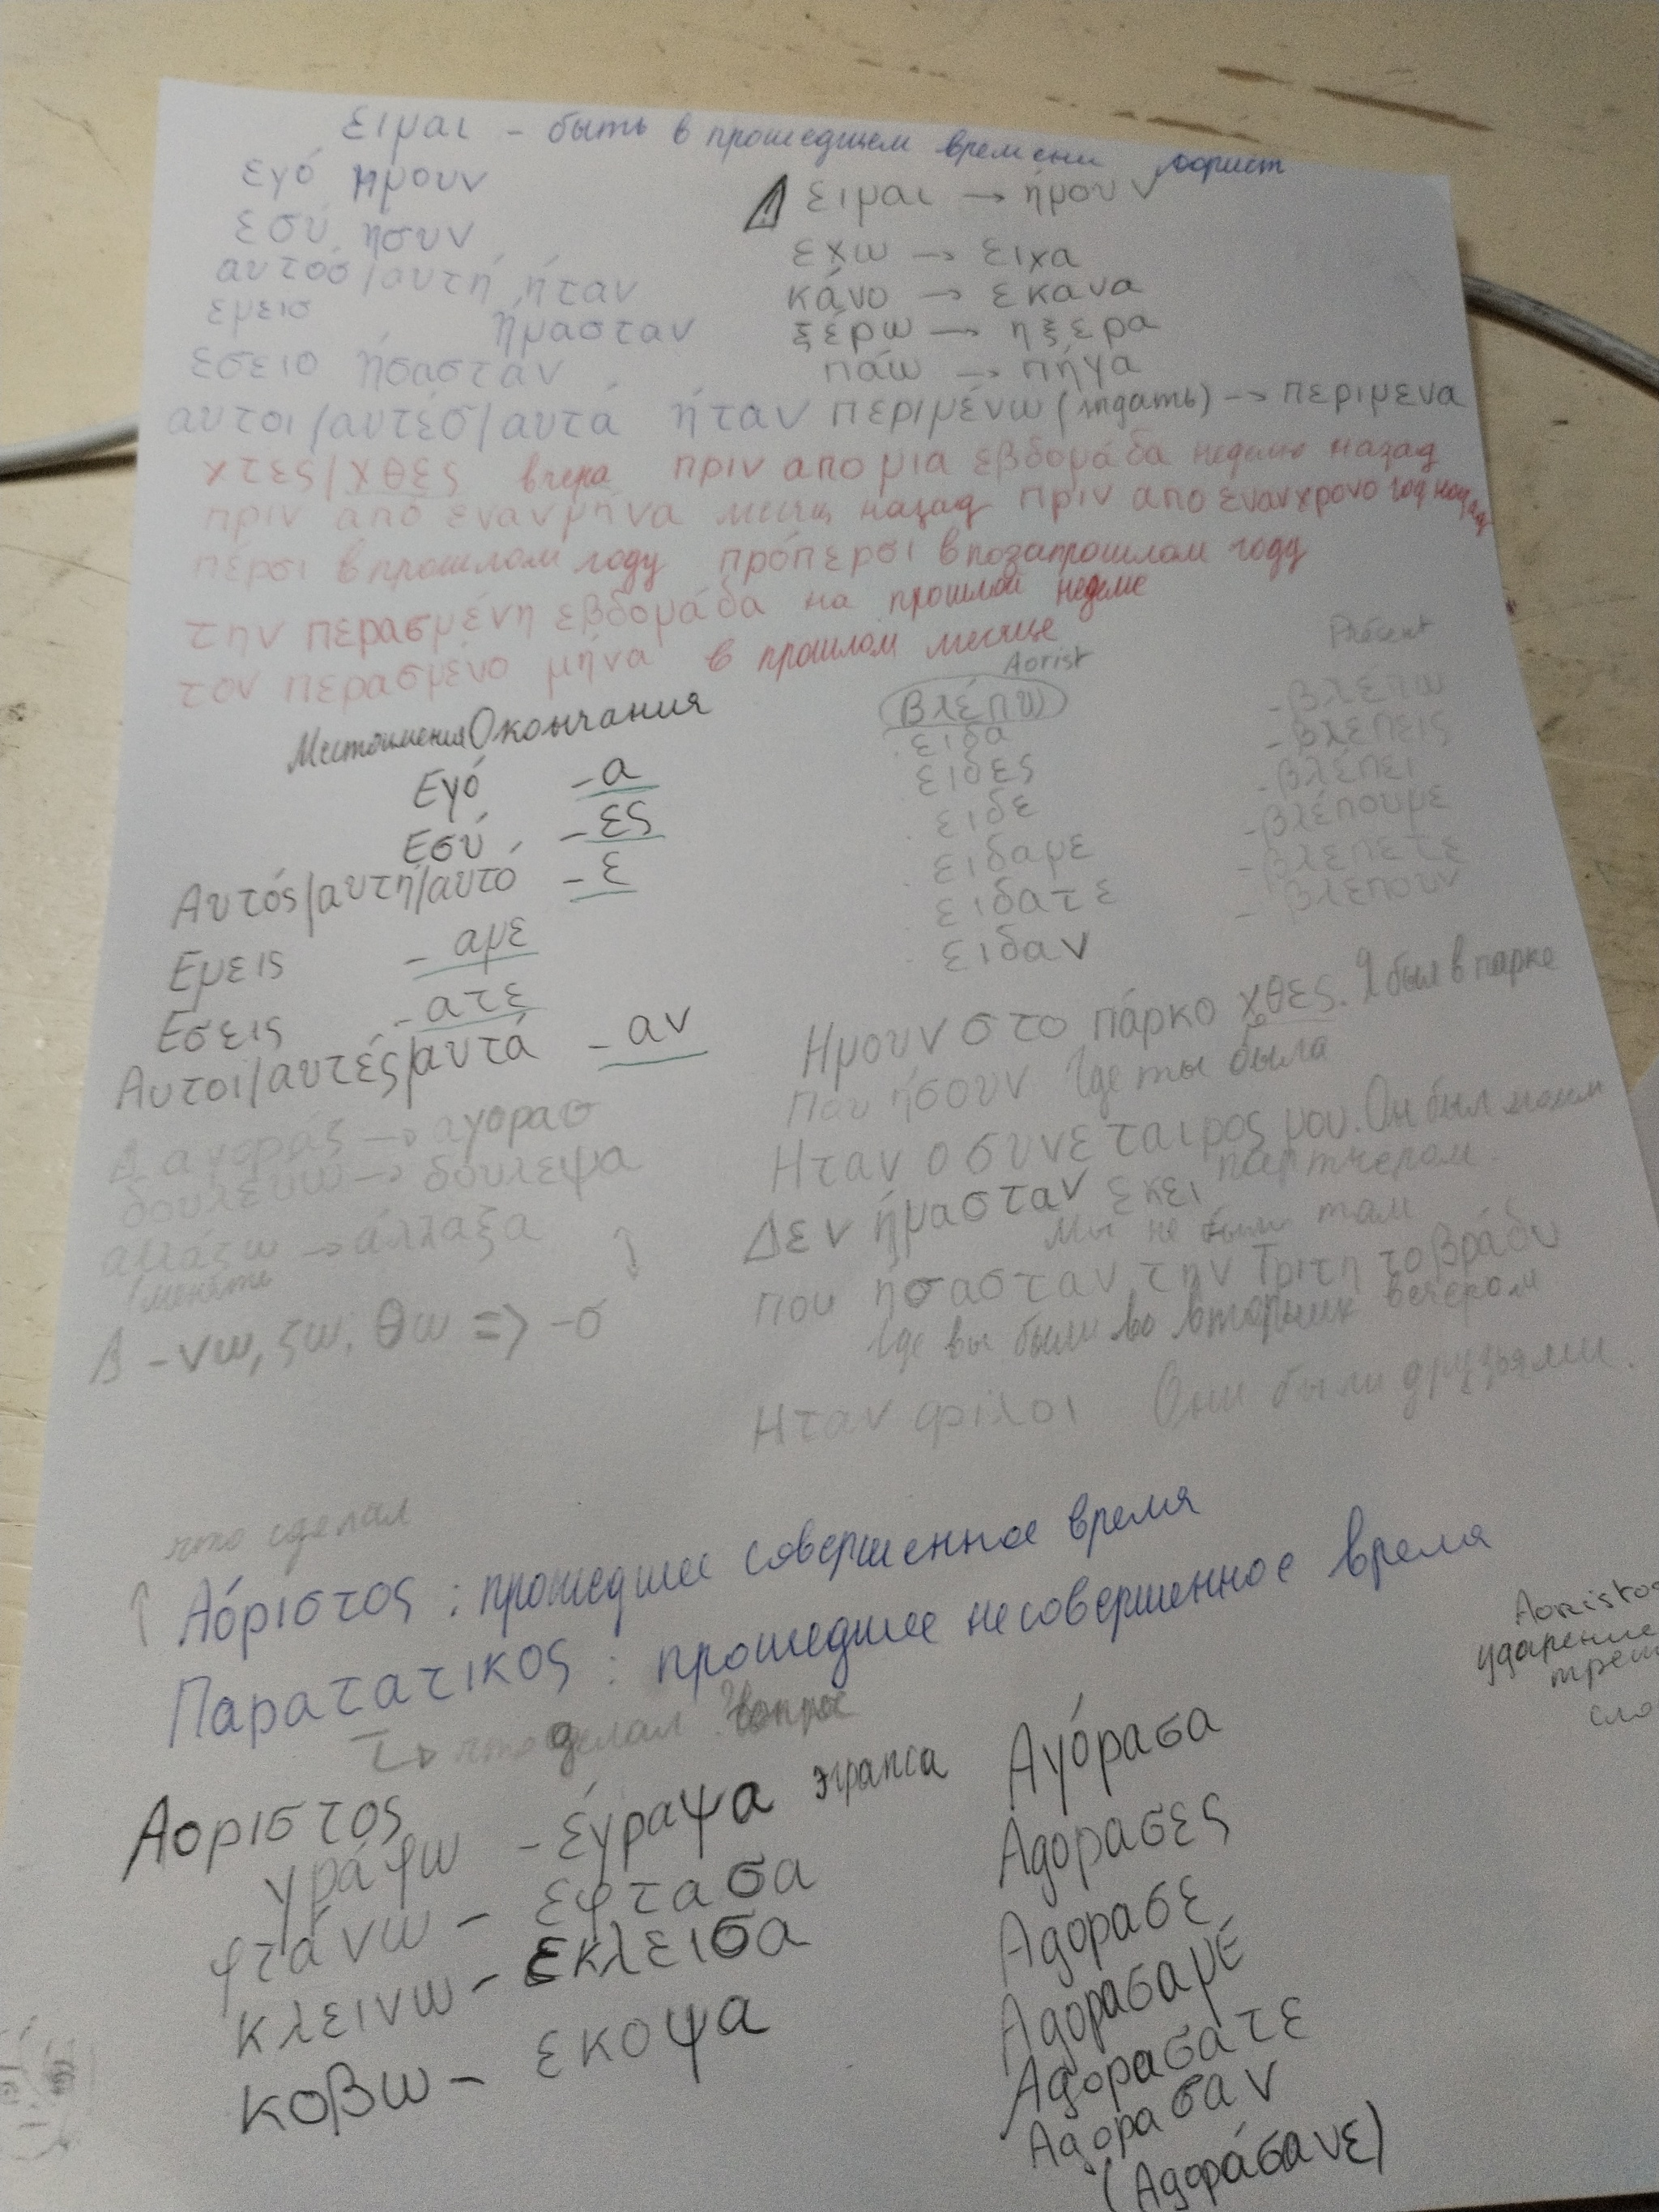 ειμαι - быть в прошедшем времени аорист
εγό ήμουν
εσύ ήσυν
αυτόσ/αυτή ήταν
εμεισ ήμασταν
εσεισ ήσασταν
αυτοι/αυτέσ/αυτά ήταν
ειμαι → ήμουν
εχω → ειχα
κάνο → εκανα
ξέρω → ηξερα
πάω → πήγα
περιμένω (ждать) → περιμενα
χτες/χθες вчера πριν απο μια εβδομάδα неделю назад
πριν από εναν μήνα месяц назад πριν απο εναν χρονο год назад
πέρσι в прошлом году πρόπερσι в позапрошлом году
την περασμένη εβδομάδα на прошлой неделе
τον περασμένο μήνα в прошлом месяце
Местоимения Окончания
Εγό -α
Εσύ -ες
Αυτός/αυτή/αυτό -ε
Εμεις -αμε
Εσεις -ατε
Αυτοι/αυτές/αυτά -αν
Aorist
βλέπω
ειδα
ειδες
ειδε
ειδαμε
ειδατε
ειδαν
Présent
-βλέπω
-βλέπεις
-βλέπει
-βλέπουμε
-βλέπετε
-βλέπουν
δουλευω → δουλεψα
αλλάζω → άλλαξα
менять
-νω, ζω, θω => -σ
Ημουν στο πάρκο χθες. Я был в парке
που ήσουν Где ты была
Ηταν ο συνεταιρος μου. Он был моим
партнером.
Δεν ήμασταν εκει
Мы не были там
που ήσασταν την Τριτη το βράδυ
Где вы были во вторник вечером
Ηταν φιλοι Они были друзьями.
что сделал
Αόριστος: прошедшее совершенное время
Παρατατικος: прошедшее несовершенное время
что делал? вопрос
Aoristos
ударение
Αοριστος
γράφω - έγραψα эграпса
φτάνω - εφτασα
κλεινω - εκλεισα
κοβω - εκοψα
Αγόρασα
Αgορασες
Αgορασε
Αgορασαμέ
Αgορασατε
Αgορασαν
(Αgοράσανε)